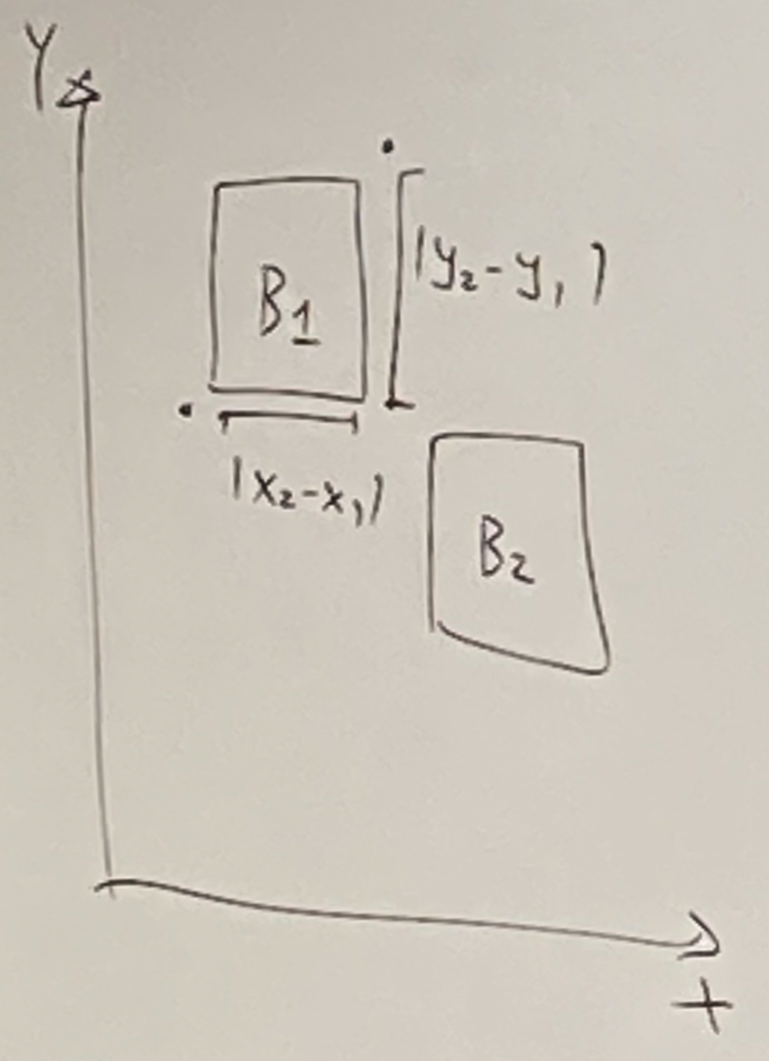 Y
B1
|y₂-y₁|
|x₂-x₁|
B₂
+